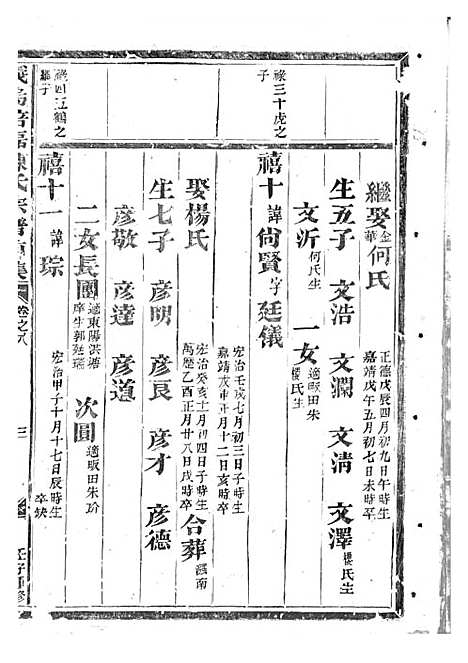 祿三十虎之
子
祿四五鶴之
繼娶金華何氏
正德戊辰四月初九日午時生
嘉靖戊午五月初七日未時卒
生五子 文浩 文瀾 文清 文澤樓氏生
文沂何氏生 一女適畈田朱樓氏生
禧十諱尙賢字廷儀
宏治壬戌七月初三日子時生
嘉靖 亥正月十二日亥時卒
娶楊氏
宏治癸亥十一月初四日子時生
萬歷乙酉正月廿八日戌時卒
合葬 南
生七子 彥明 彥良 彥才 彥德
彥敬 彥達 彥道
二女長圓適東陽洪塘庠生郭廷 次圓適畈田朱玠
禧十一諱琮
宏治甲子十月十七日辰時生
卒缺
陳氏宗譜 卷之八
三